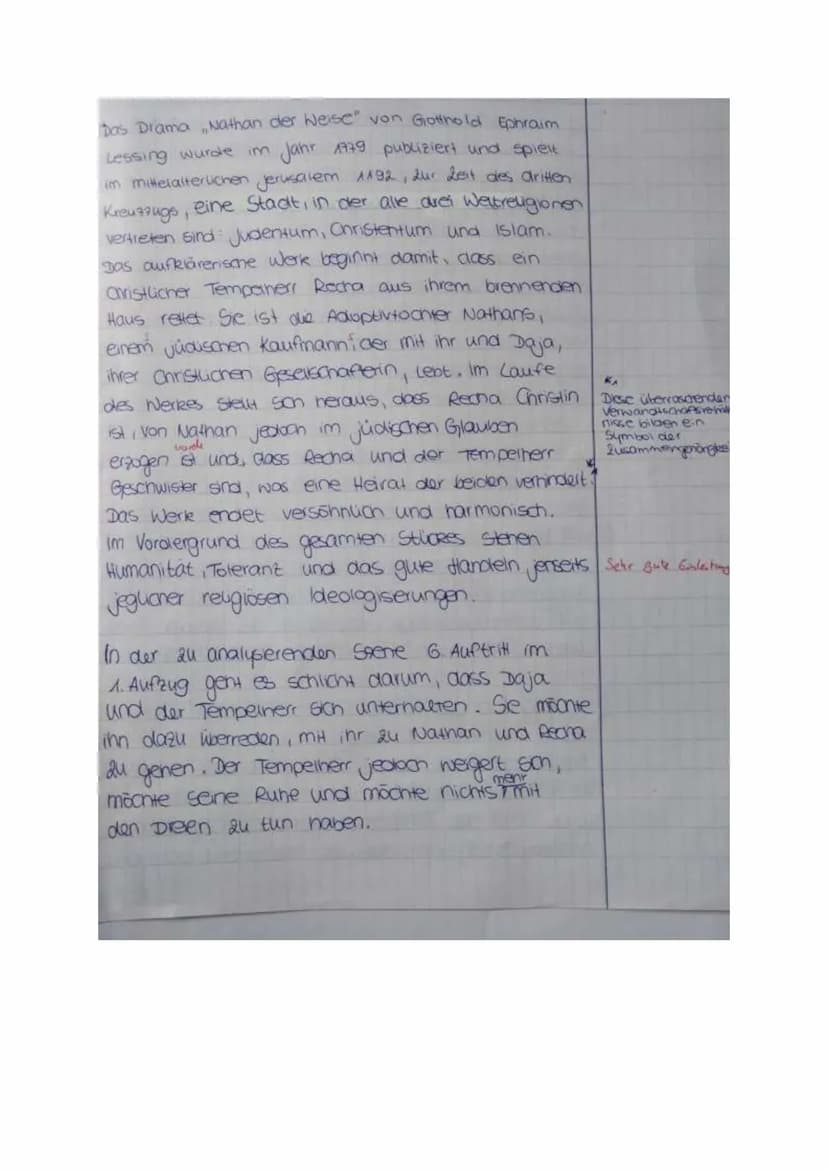 Das Drama „Nathan der Weise" von Gotthold Ephraim
Lessing wurde im Jahr 1779 publiziert und spielt
im mittelalterlichen Jerusalem 1192, zur Zeit des dritten
Kreuzzugs, eine Stadt, in der alle drei Weltreligionen
vertreten sind: Judentum, Christentum und Islam.
Das aufklärerische Werk beginnt damit, dass ein
christlicher Tempelherr Recha aus ihrem brennenden
Haus rettet. Sie ist die Adoptivtochter Nathans,
einem jüdischen Kaufmann, der mit ihr und Daja,
ihrer christlichen Gesellschafterin, lebt. Im Laufe
des Werkes stellt sich heraus, dass Recha Christin
ist, von Nathan jedoch im jüdischen Glauben
wurde
erzogen ist und, dass Recha und der Tempelherr
Geschwister sind, was eine Heirat der beiden verhindert.
Das Werk endet versöhnlich und harmonisch.
Im Vordergrund des gesamten Stückes stehen
Humanität, Toleranz und das gute Handeln jenseits
jeglicher religiösen Ideologiserungen.
In der zu analysierenden Szene 6. Auftritt im
1. Aufzug geht es schlicht darum, dass Daja
und der Tempelherr sich unterhalten. Sie möchte
ihn dazu überreden, mit ihr zu Nathan und Recha
zu gehen. Der Tempelherr jedoch weigert sich,
mehr
möchte seine Ruhe und möchte nichts mit
den Dreen zu tun haben.
Diese überraschenden
nisse bilden ein
Symbol der
Sehr gute Einleitung